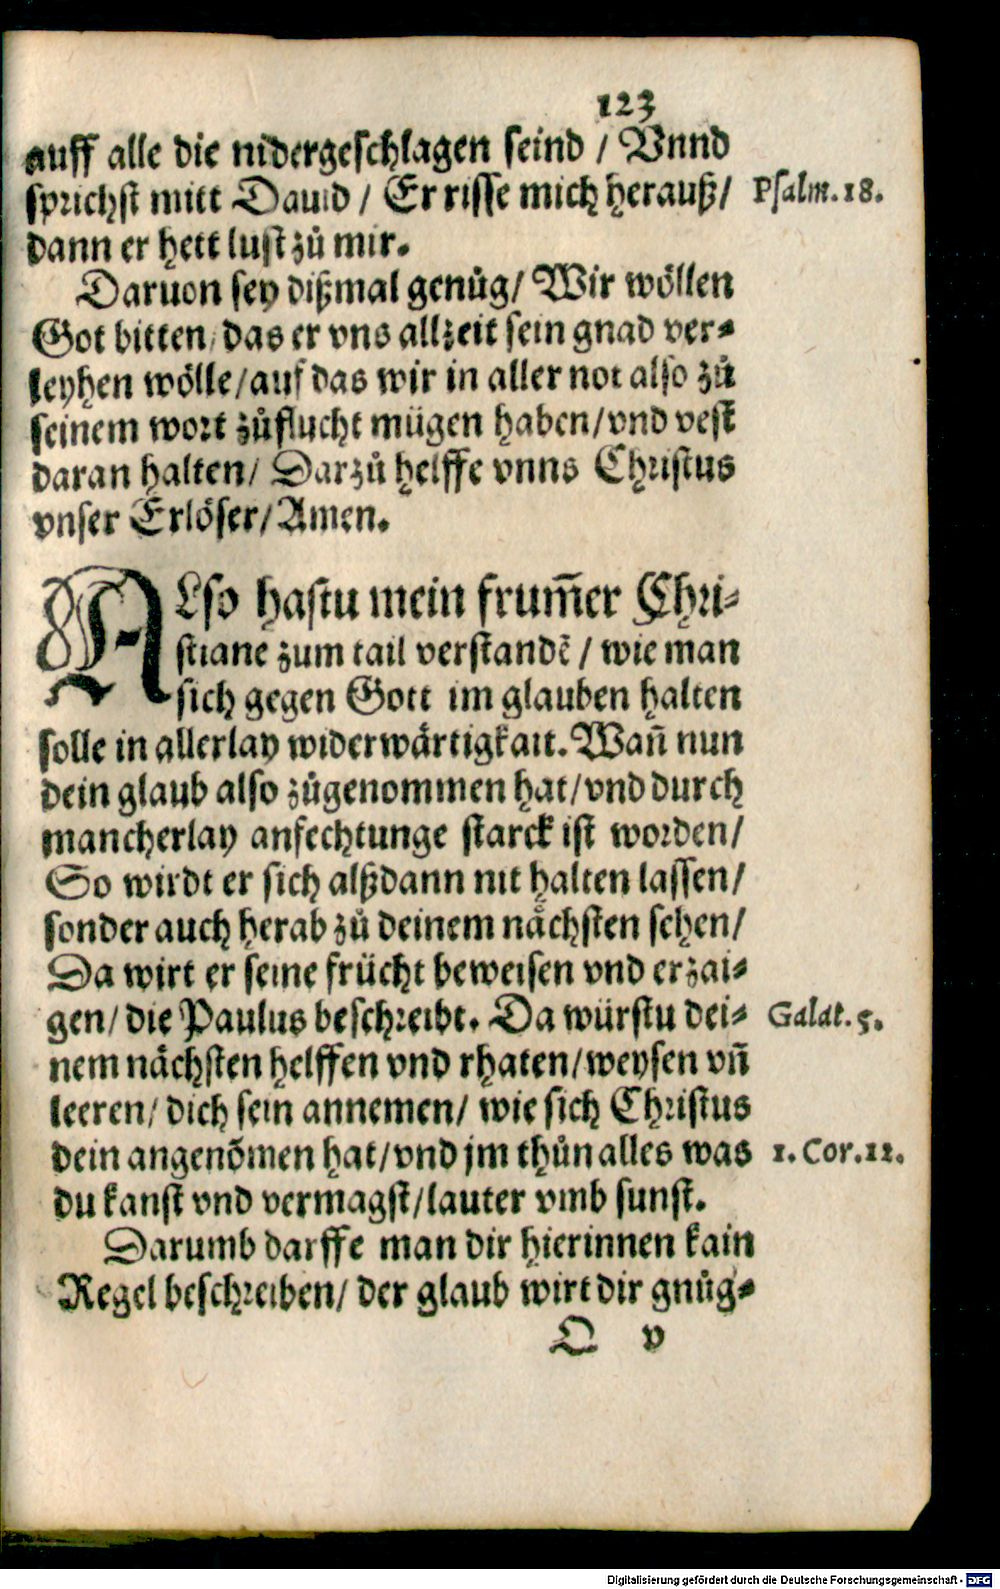 123
auff alle die nidergeschlagen seind / Vnnd
sprichst mitt Dauid / Er risse mich herauß/ Psalm.18.
dann er hett lust zů mir.
Daruon sey dißmal genůg/ Wir wöllen
Got bitten/ das er vns allzeit sein gnad ver⸗
leyhen wölle/auf das wir in aller not also zů
seinem wort zůflucht mügen haben/vnd vest
daran halten/ Darzů helffe vnns Christus
vnser Erlöser/Amen.
ALso hastu mein frum̃er Chri⸗
stiane zum tail verstandẽ / wie man
sich gegen Gott im glauben halten
solle in allerlay widerwärtigkait. Wañ nun
dein glaub also zůgenommen hat/vnd durch
mancherlay anfechtunge starck ist worden/
So wirdt er sich alßdann nit halten lassen/
sonder auch herab zů deinem nächsten sehen/
Da wirt er seine frücht beweisen vnd erzai⸗
gen/ die Paulus beschreibt. Da würstu dei⸗ Galat.5.
nem nächsten helffen vnd rhaten/weysen vñ
leeren/ dich sein annemen/ wie sich Christus
dein angenõmen hat/vnd jm thůn alles was 1.Cor.12.
du kanst vnd vermagst/lauter vmb sunst.
Darumb darffe man dir hierinnen kain
Regel beschreiben/ der glaub wirt dir gnůg⸗
O v
Digitalisierung gefördert durch die Deutsche Forschungsgemeinschaft - DFG